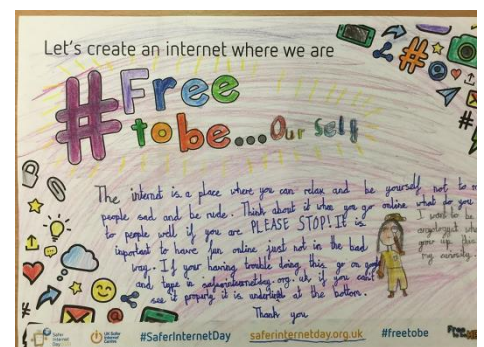 Let's create an internet where we are
#Free
to be...Our Self
The internet is a place where you can relax and be yourself not to m
people sad and be rude. Think about it when you go online what do you
to people well if you are PLEASE STOP! It is
important to have fun online just not in the bad
way. If your having trouble doing this go on
and type in saferinternetday.org.uk if you can't
see it properly it is underlined at the bottom.
Thank you
I want to be
grow up this
my
Safer
Internet
Day
UK Safer
Internet
Centre
#SaferInternetDay
saferinternetday.org.uk
#freetobe
Free